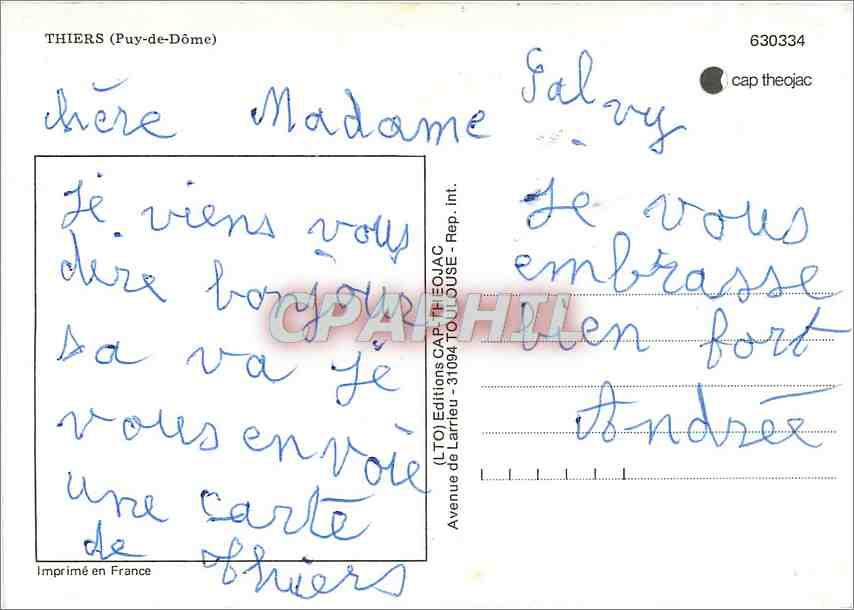 THIERS (Puy-de-Dôme)
630334
cap theojac
hère Madame Palvy
Je viens vous
dire bonjour
sa va je
vous envoie
une carte
de Thiers
Je vous
embrasse
bien fort
Andrée
(LTO) Editions CAP-THEOJAC
Avenue de Larrieu - 31094 TOULOUSE - Rep. int.
Imprimé en France
CPAPHIL